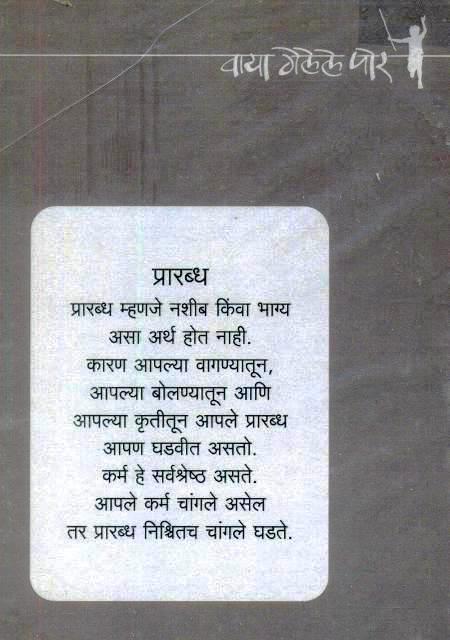 वाया गेलेले पोर
प्रारब्ध
प्रारब्ध म्हणजे नशीब किंवा भाग्य
असा अर्थ होत नाही.
कारण आपल्या वागण्यातून,
आपल्या बोलण्यातून आणि
आपल्या कृतीतून आपले प्रारब्ध
आपण घडवीत असतो.
कर्म हे सर्वश्रेष्ठ असते.
आपले कर्म चांगले असेल
तर प्रारब्ध निश्चितच चांगले घडते.